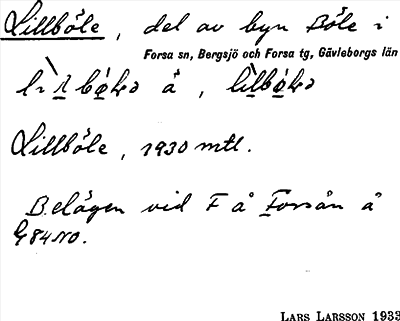 Lillböle, del av byn Böle i
Forsa sn, Bergsjö och Forsa tg, Gävleborgs län
å,
Lillböle, 1930 mtl.
Belägen vid F å Forsån å
G84NO.
LARS LARSSON 1933